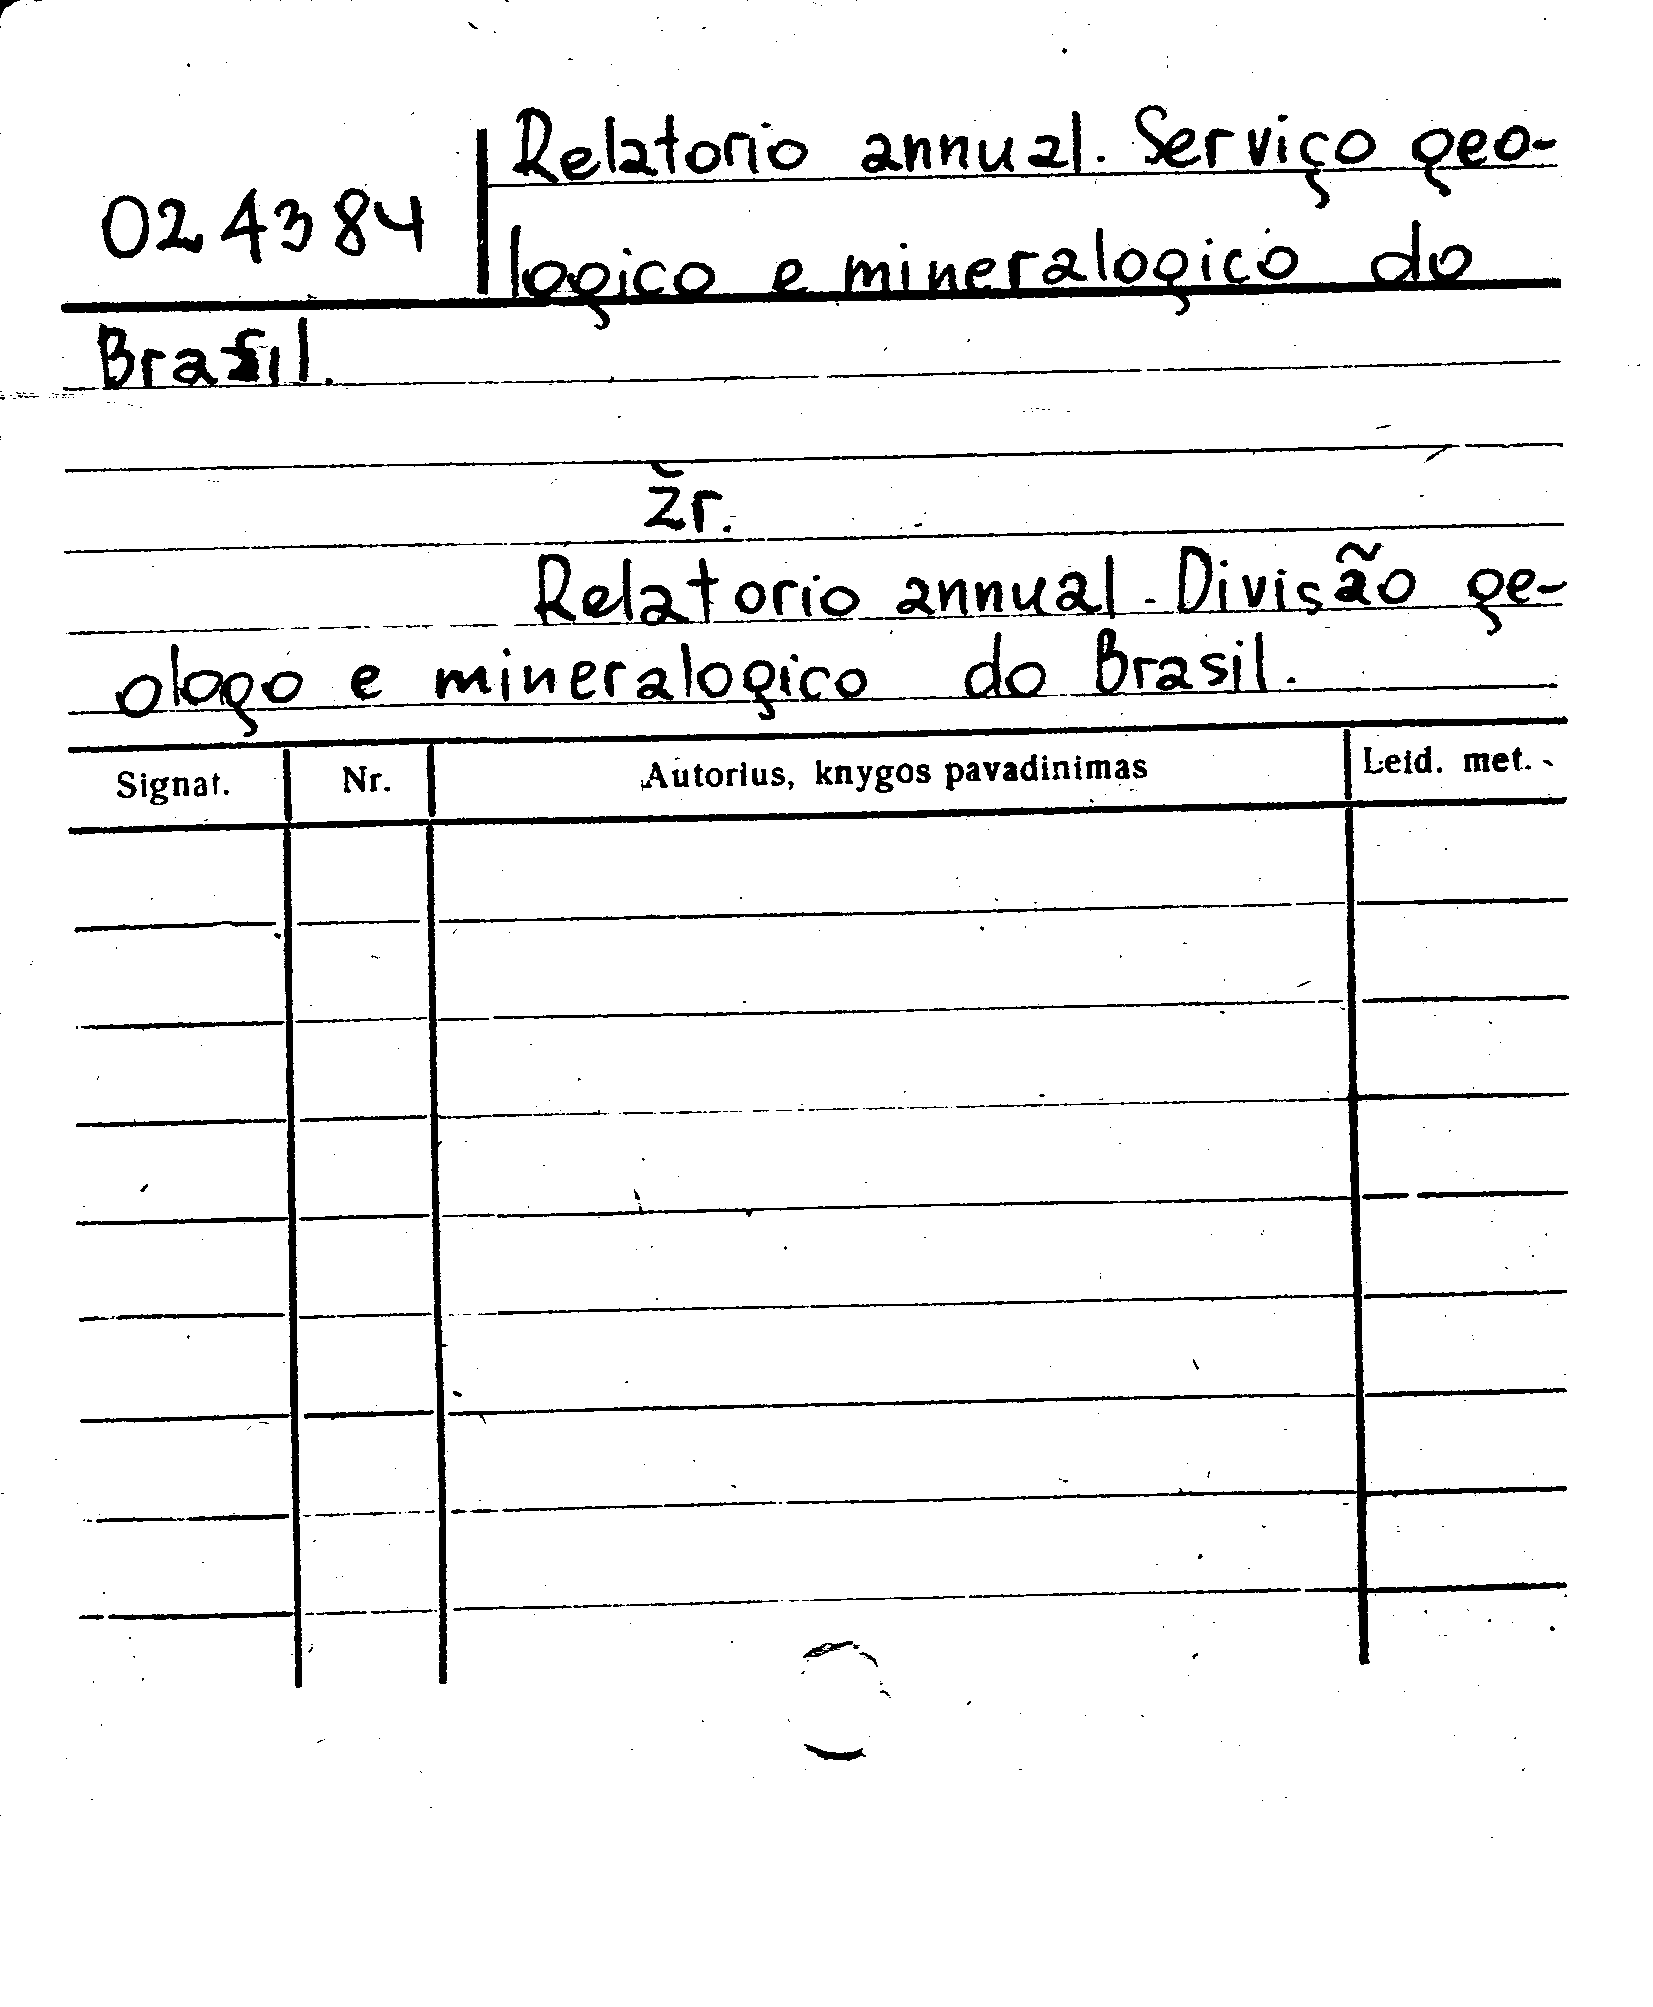 Relatorio annual. Serviço geo-
024384
logico e mineralogico do
Brasil.
žr.
Relatorio annual. Divisão ge-
ologo e mineralogico do Brasil.
Signat. Nr. Autorius, knygos pavadinimas Leid. met.